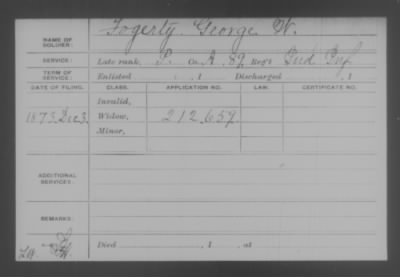 NAME OF SOLDIER: Fogerty, George W.
SERVICE: Late rank, P. Co. A, 89 Reg't Ind Inf
TERM OF SERVICE: Enlisted , 1 Discharged , 1
DATE OF FILING. CLASS. APPLICATION NO. LAW. CERTIFICATE NO.
Invalid,
1873, Dec 3, Widow, 212,657.
Minor,
ADDITIONAL SERVICES:
REMARKS:
Died , 1 , at